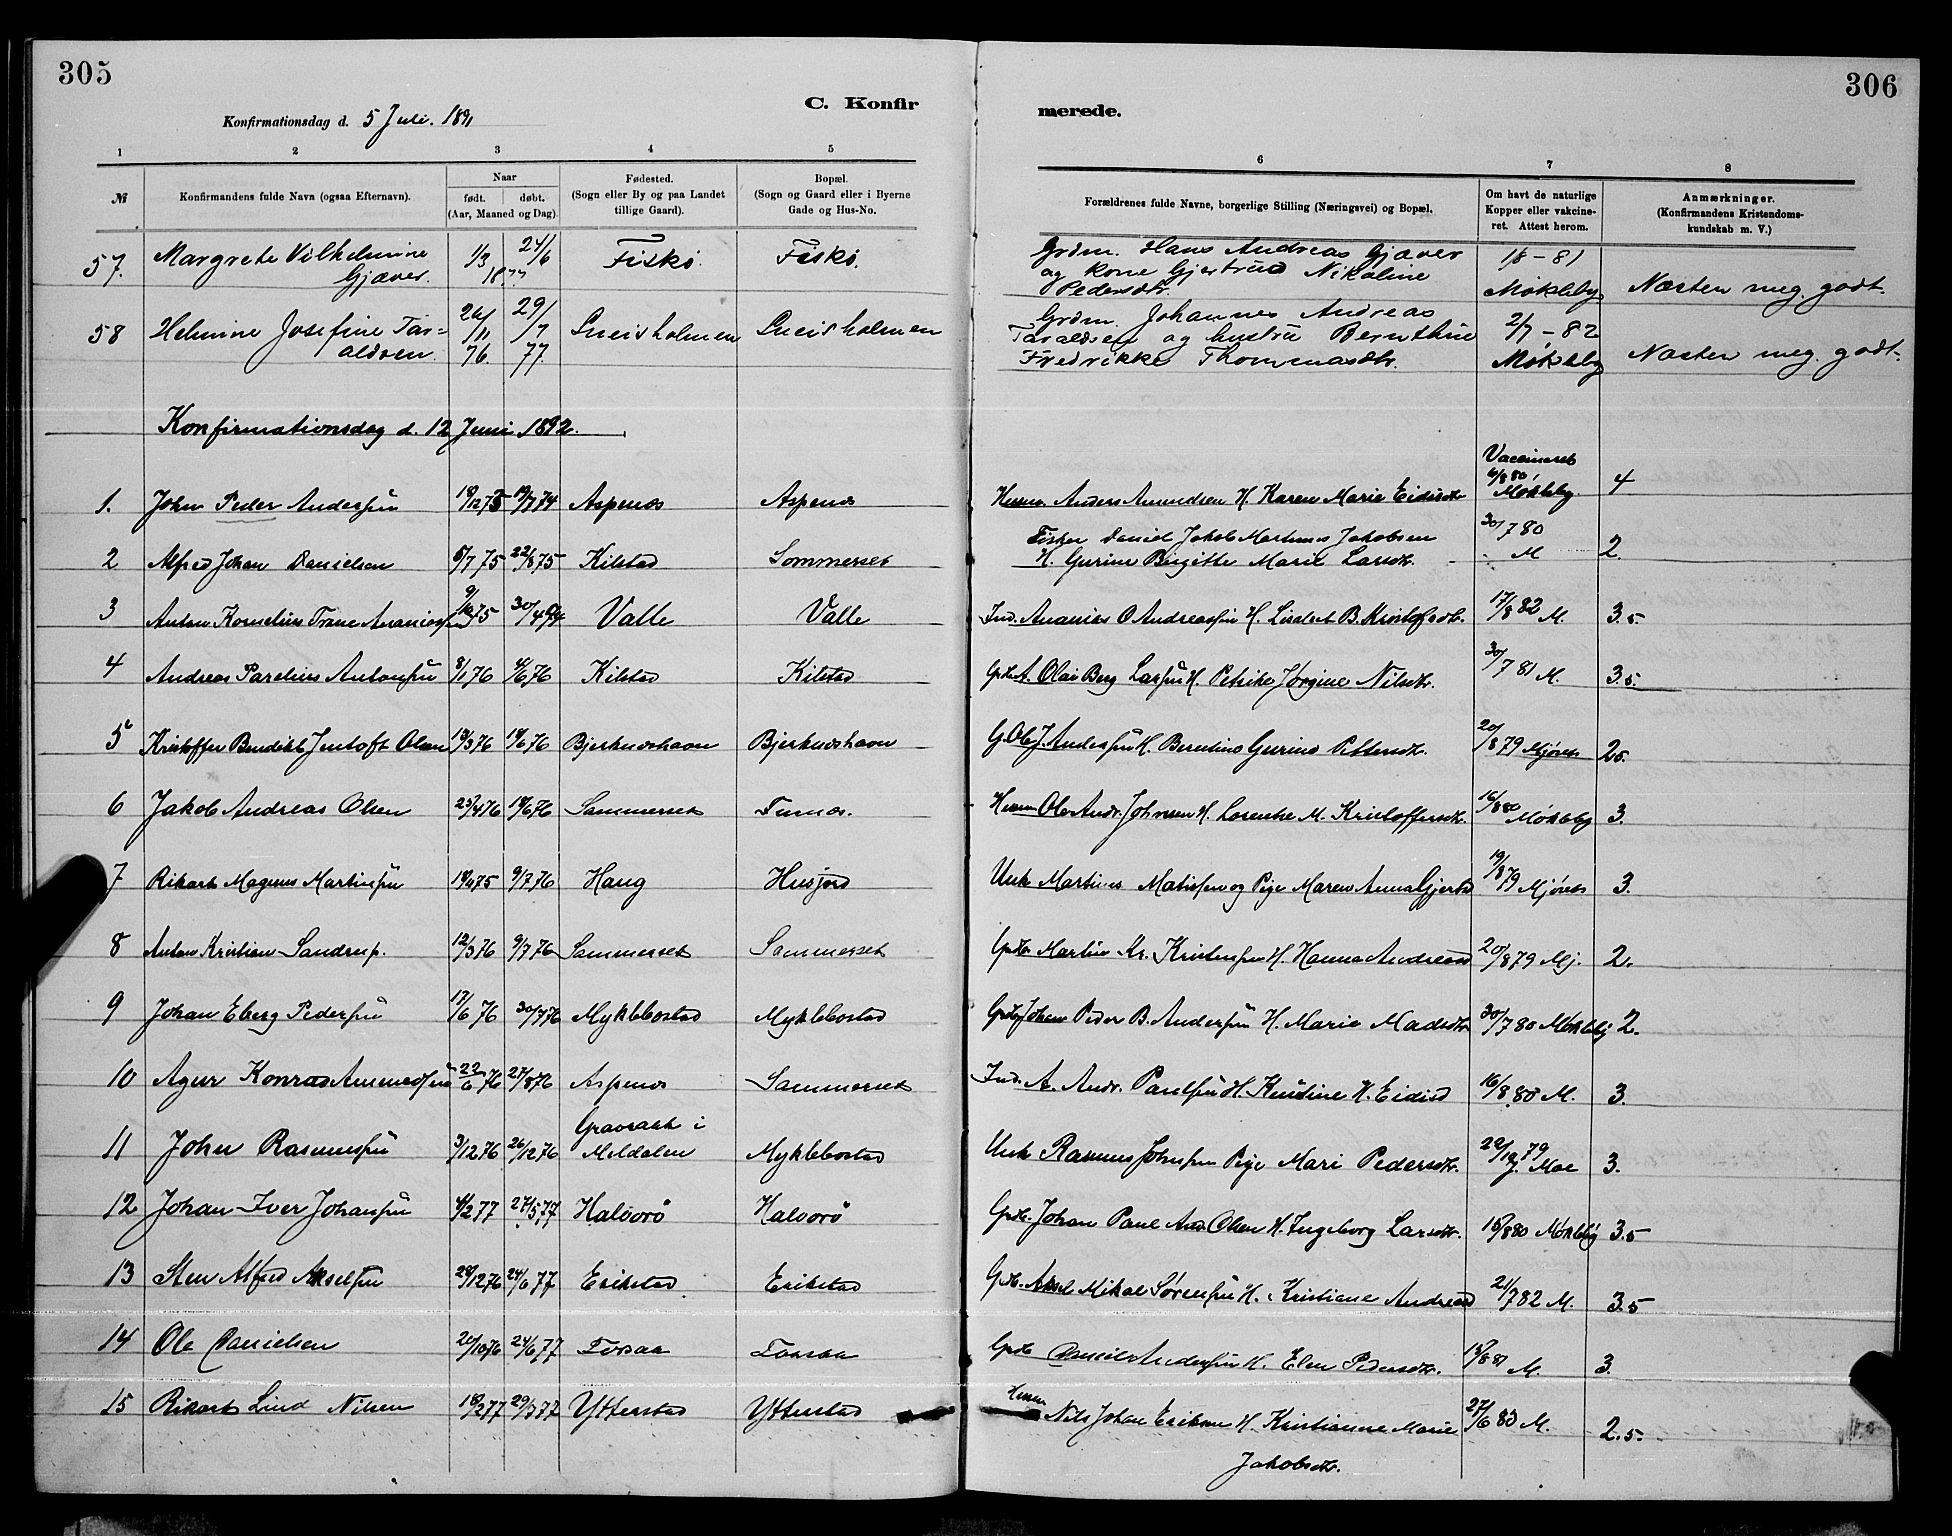 305
306
C. Konfir
merede.
Konfirmationsdag d. 5 Juli. 1891
1 2 3 4 5 6 7 8
№
Konfirmandens fulde Navn (ogsaa Efternavn).
Naar
født. døbt.
(Aar, Maaned og Dag)
Fødested.
(Sogn eller By og paa Landet
tillige Gaard).
Bopæl.
(Sogn og Gaard eller i Byerne
Gade og Hus-No.
Forældrenes fulde Navne, borgerlige Stilling (Næringsvei) og Bopæl.
Om havt de naturlige
Kopper eller vakcine-
ret. Attest herom.
Anmærkninger.
(Konfirmandens Kristendoms-
kundskab m. V.)
57. Margrete Vilhelmine 1/3 24/6 Fiskö. Fiskö. Grdm. Hans Andreas Gjæver 1/8 - 81
Gjæver. 1877 og kone Gjertrud Nikoline
Pedersdtr. Møkleby Næsten meg. godt.
58 Helmine Josefine Tar- 26/11 29/7 Lucisholmen Lucisholmen Grdm. Johannes Andreas 2/7 - 82
aldsen. 76. 77. Taraldsen og hustru Bernthine
Fredrikke Thommasdtr. Møkleby Næsten meg. godt.
Konfirmationsdag d. 12 Juni 1892.
Vaccineret
1. John Peder Andersen 18/12 73 19/7 74 Aspenæs Aspenæs Husm. Anders Amundsen H. Karen Marie Eidisdtr 6/8 80 Møkleby. 4
2 Alfred Johan Danielsen 5/7 75 22/8 75 Kilstad Sommerset Fisker Daniel Jakob Martinus Jakobsen 30/7 80
H. Gurine Birgitte Marie Larsdtr. M 2.
3 Anton Kornelius Trane Ananiassen 9/10 75 Valle Valle Ind. Ananias O Andreassen H. B. Kristofsdtr. 17/8 82 M. 3.5
4 Andreas Parelius Antonsen 8/1 76 4/6 76 Kilstad Kilstad A. Olai Berg Larsen H. Petrike Jørgine Nilsdtr. 30/7 81 M. 3.5.
5 Kristoffer Bendikt Jentoft Olsen 13/3 76 18/6 76 Bjerknæshavn Bjerknæshavn G. Ole J. Andersen H. Berntine Gurine Pettersdtr. 20/8 79 Mjøvets 2.5.
6 Jakob Andreas Olsen 23/4 76 18/6 76 Sammerset Furnæs. Husm Ole Andr. Johnsen H. Lorentse M. Kristoffersdtr. 16/8 80 Møkleby 3.
7 Rikart Magnus Martinsen 9/7 76 Haug Husjord Unk Martinus Matissen og Pige Maren Anna Gjertsd 19/8 79 Mjøvets 3.
8 Anton Kristian Sandrup. 12/3 76 9/7 76 Sammerset Sommerset Grdbr Martin Kr. Kristensen H. Hanna Andreasd 20/8 79 Mj. 2.
9 Johan Eberg Pedersen 17/6 76 30/7 76 Myklebostad Myklebostad Grdbr Johan Peder B. Andersen H. Marie Madsdtr 30/7 80 Møkleby 2.
10 Agur Konrad 22/6 76 27/8 76 Aspenæs Sammerset Ind. A. Andr. Paulsen H. Kristine K. Eidisd 16/8 80 M. 3.
11 John Rasmussen 3/12 76 26/12 76 Gravraak i
Meldalen Myklebostad Unk Rasmus Johnsen Pige Mari Pedersdtr. 22/12 79 J. Moe 3.
12 Johan Iver Johansen 4/2 77 27/5 77 Halvorö Halvorö Grdb. Johan Paul And. Olsen H. Ingeborg Larsdtr. 15/8 80 Møkleby 3.5
13 Sten Alfred Akselsen 28/12 76 24/6 77 Erikstad Erikstad Grdb. Aksel Mikal Sørensen H. Kristiane Andreasd 21/7 82 M. 3.5
14 Ole Danielsen 20/10 76 24/6 77 Forsaa Forsaa Grdb Daniel Andersen H. Elen Pedersdtr. 15/8 81 M. 3.
15 Rikart Lind Nilsen 18/2 77 29/3 77 Ytterstad Ytterstad Husm Nils Johan Eriksen H. Kristianne Marie 27/6 83 M. 2.5.
Jakobsdtr.